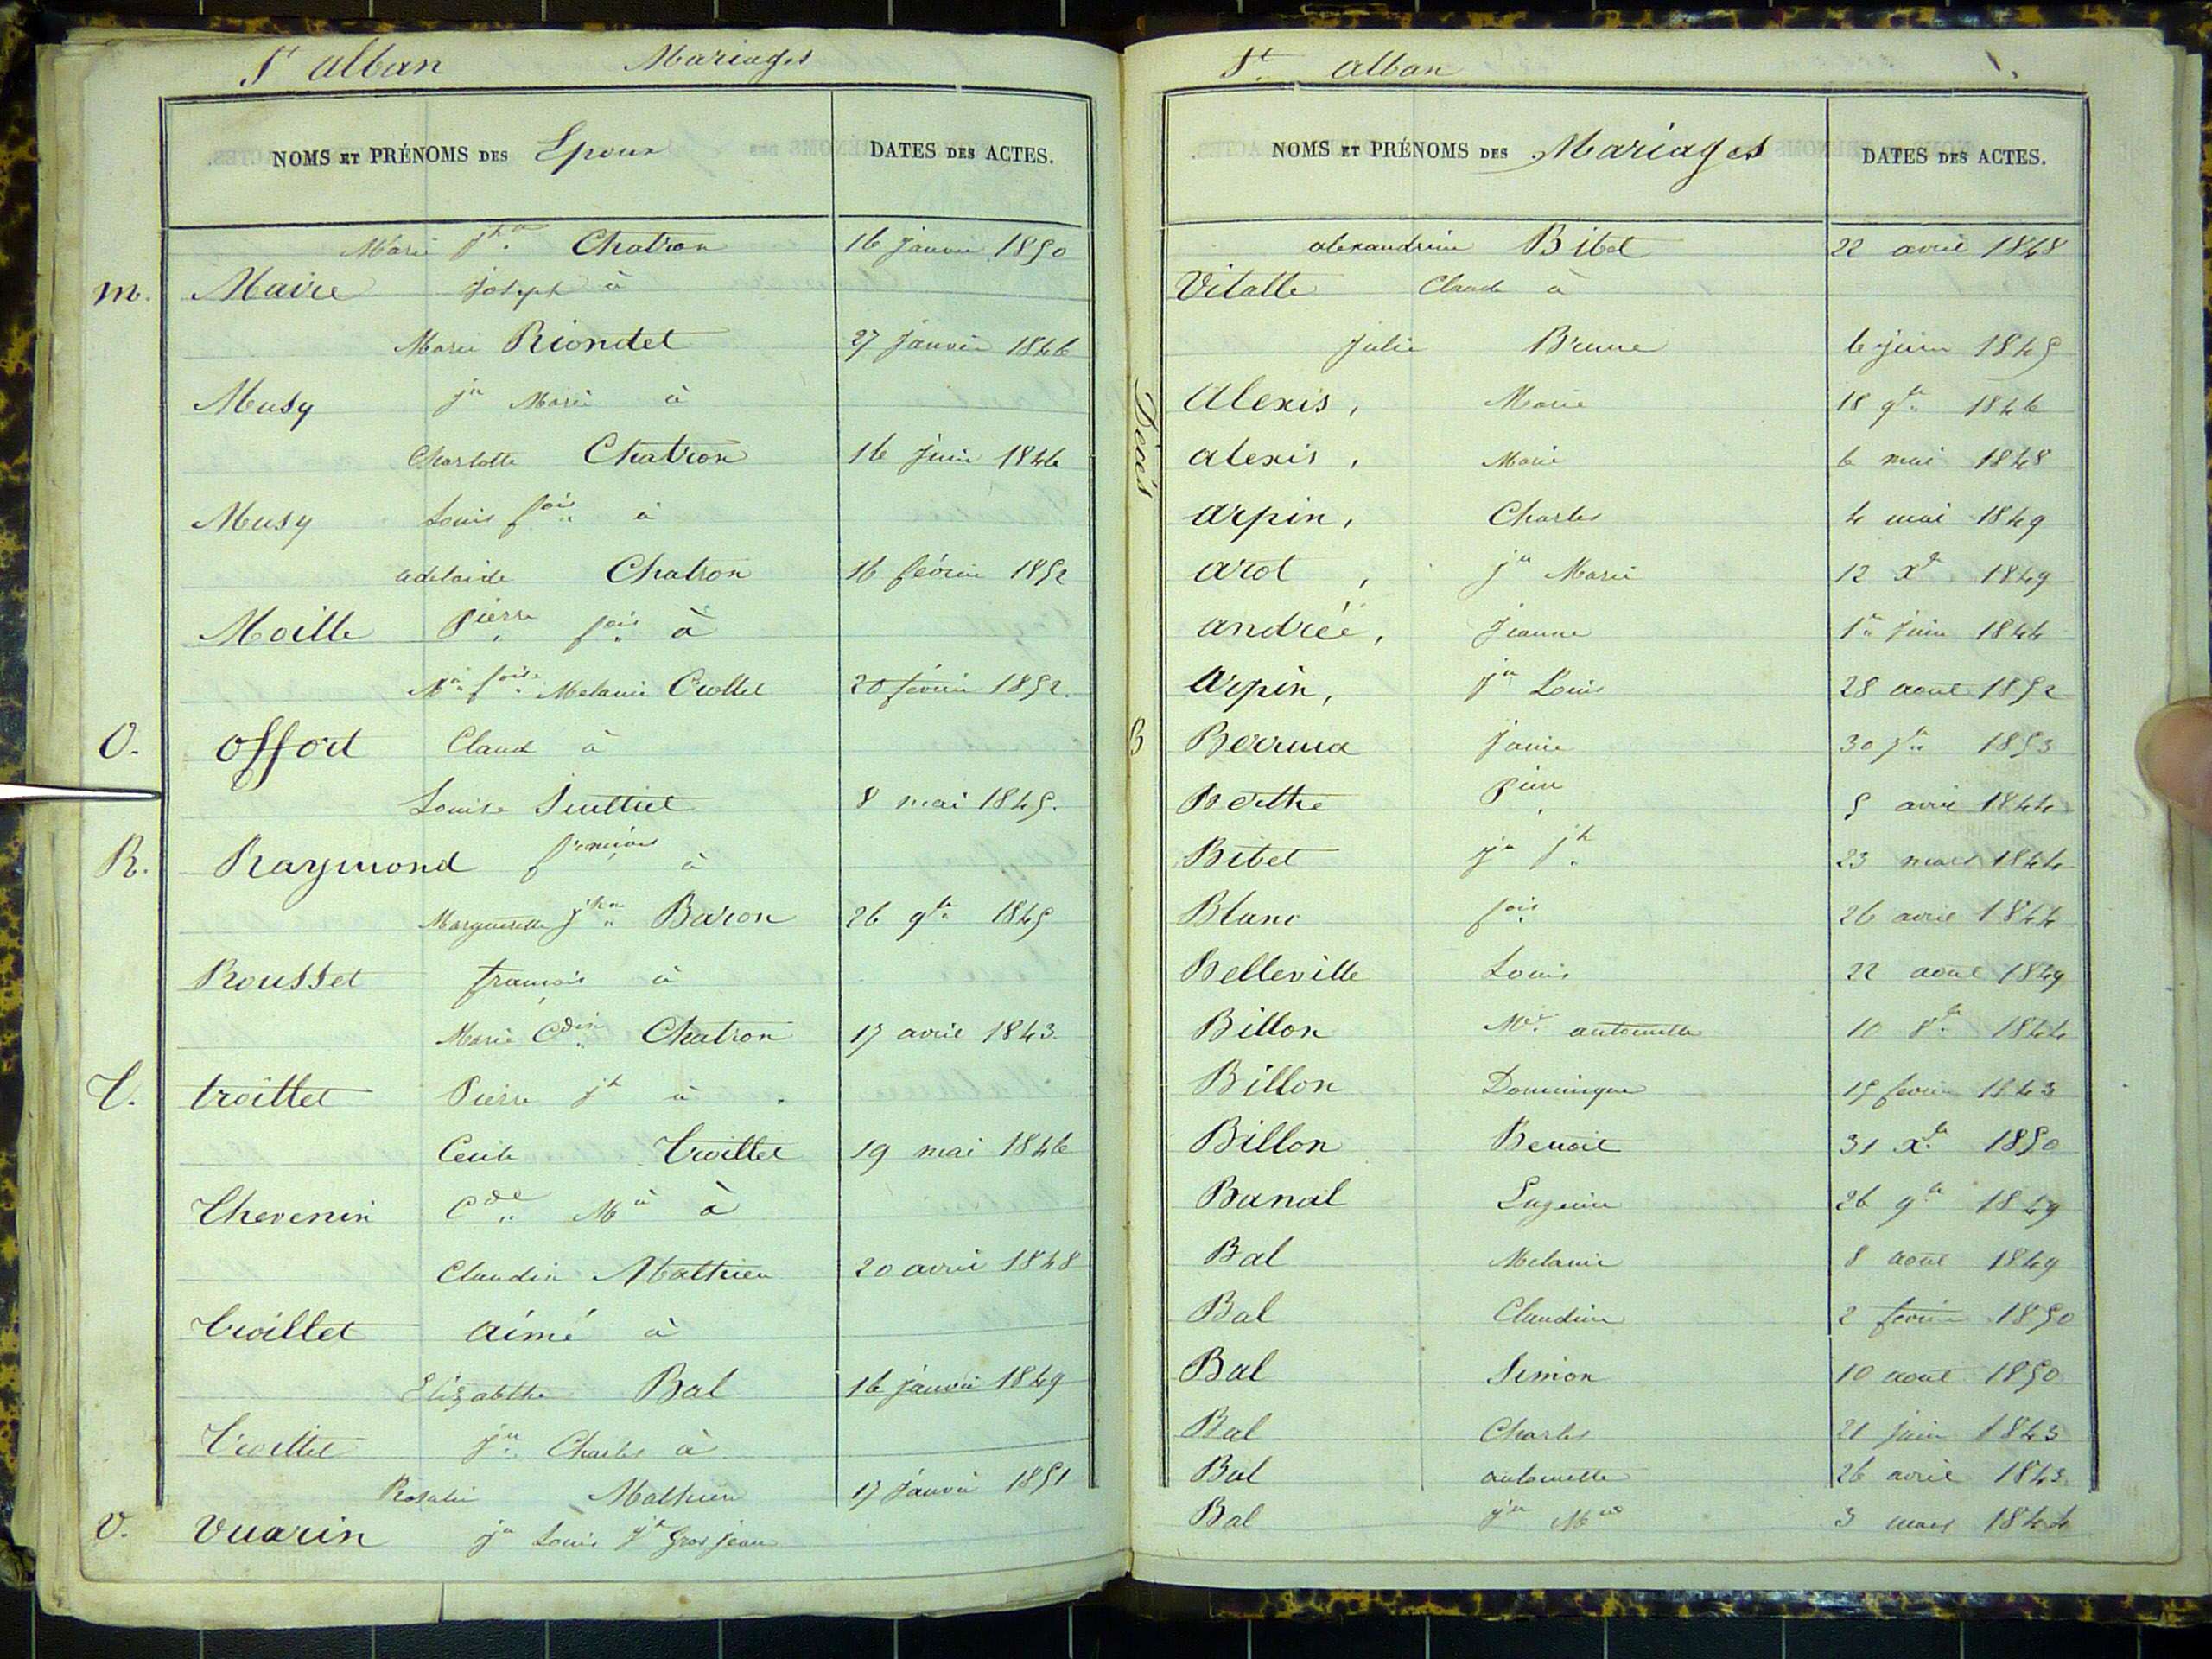 St alban Mariages
NOMS ET PRÉNOMS DES Epoux DATES DES ACTES.
Marie jhte Chatron 16 janvier 1850
M. Maire joseph à
Marie Riondet 27 janvier 1846
Musy jn Marie à
Charlotte Chatron 16 juin 1846
Musy Louis fois à
adelaide Chatron 16 février 1852
Moille Pierre fois à
Ma foise Melanie Crollet 20 février 1852.
O. offort Claud à
Louise 8 mai 1845.
R. Raymond françois à
Marguerette jhte Baron 26 9bre 1845
Rousset françois à
Marie Cdine Chatron 17 avril 1843.
T. troillet Pierre jh à
Cecile Troillet 19 mai 1846
Thevenin Cde Ma à
Claudine Mathieu 20 avril 1848
Troillet aimé à
Elizabethe Bal 16 janvier 1849
Troillet jn Charles à
Rosalie Mathieu 17 janvier 1851
V. Vuarin jn Louis jh Gros jean
St. alban
NOMS ET PRÉNOMS DES Mariages DATES DES ACTES.
alexandrine Bibet 22 avril 1848
Vitalle Claude à
julie Brune 6 juin 1845
Décès
Alexis, Marie 18 9bre 1846
alexis, Marie 6 mai 1848
arpin, Charles 4 mai 1849
arot, jn Marie 12 Xbre 1849
andréé, jeanne 1er juin 1844
Arpin, jn Louis 28 aout 1852
B Berruca 30 1853
Berthe Pierre 5 avril 1844
Bibet jn jh 23 mars 1844
Blanc fois 26 avril 1844
Belleville Louis 22 aout 1849
Billon Mie antoinette 10 8bre 1844
Billon Dominique 15 fevrier 1843
Billon Benoit 31 Xbre 1850
Banal Eugenie 26 9bre 1849
Bal Melanie 8 aout 1849
Bal Claudine 2 fevrier 1850
Bal Simon 10 aout 1850
Bal Charles 21 juin 1843
Bal antoinette 26 avril 1843
Bal jn Mie 3 mars 1844